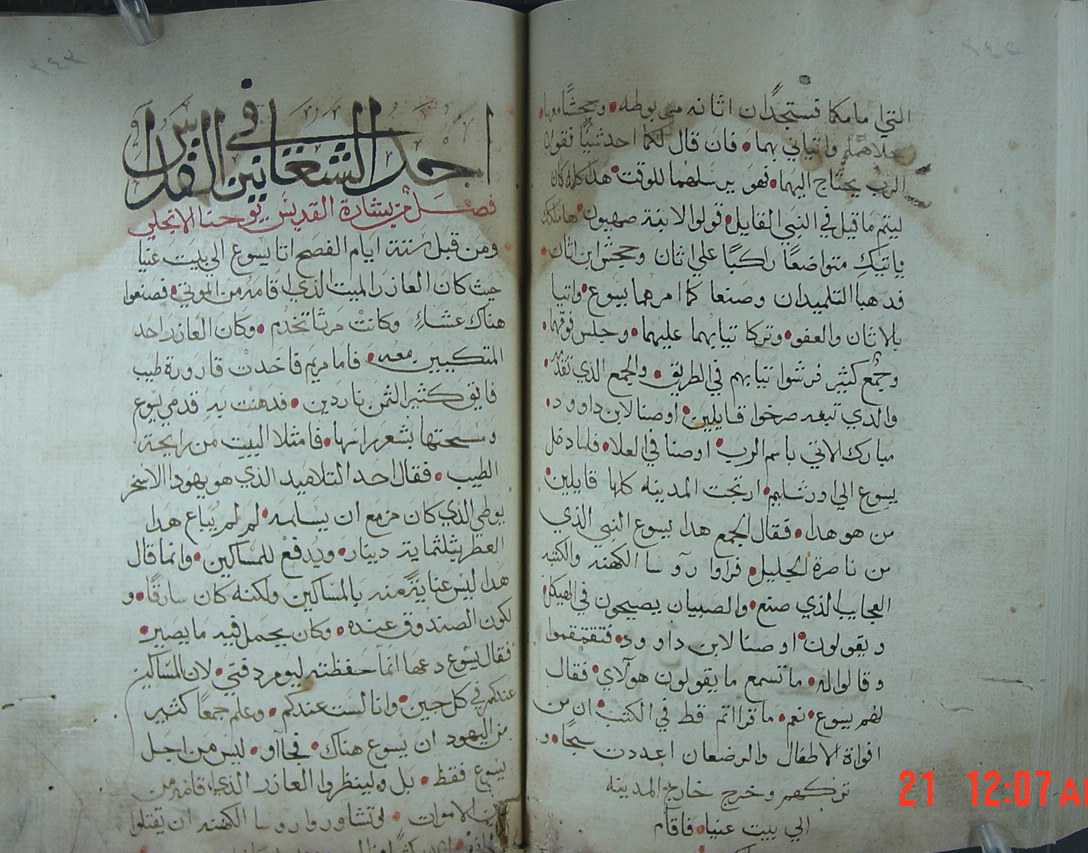 التي امامكما فتستجدان اتانه مربوطه وجحشًا معها
حلاهما واتياني بهما فان قال لكما احد شيًا فقولا
الرب يحتاج اليهما فهو يرسلهما للوقت هدا كله كان
ليتم ما قيل في النبي القايل قولوا لابنة صهيون ها ملكك
ياتيكِ متواضعًا راكبًا على اتان وجحش ابن اتان
فدهبا التلميدان وصنعا كما امرهما يسوع واتيا
بلاتان والعفو وتركا تيابهما عليهما وجلس فوقهما
وجمع كثير فرشوا تيابهم في الطريق والجمع الذي تقدمه
والدي تبعه صرخوا قايلين اوصنا لابن داوود
مبارك الاتي باسم الرب اوصنا في العلا فلما دخل
يسوع الي اورشليم ارتجت المدينه كلها قايلين
من هو هدا فقال الجمع هدا يسوع النبي الذي
من ناصرة الجليل فراوا روسا الكهنه والكتبه
العجايب الذي صنع والصبيان يصيحون في الهيكل
ويقولون اوصنا لابن داوود فتقمقموا
وقالوا له ما تسمع ما يقولون هولاي فقال
لهم يسوع نعم ما قراتم قط في الكتب ان من
افواة الاطفال والرضعان اعددت سبحًا و
تركهم وخرج خارج المدينه
الي بيت عنيا فاقام
احد الشعانين في القداس
فصل من بشارة القديس يوحنا الانجلي
ومن قبل ستة ايام الفصح اتا يسوع الي بيت عنيا
حيت كان العازر الميت الذي اقامه من الموتي فصنعوا
هناك عشاء وكانت مرتا تخدم وكان العازر احد
المتكيين معه فاما مريم فاخدت قارورة طيب
فايق كثير التمن ناردين فدهنت به قدمي يسوع
ومسحتها بشعر راسها فامتلا البيت من رايحة
الطيب فقال احد التلاميد الذي هو يهودا الاسخر
يوطي الذي كان مزمع ان يسلمه لم لم يباع هدا
العطر بثلثماية دينار ويُدفع للمساكين وانما قال
هدا ليس عنايةً منه بالمساكين ولكنه كان سارقًا و
لكون الصندوق عنده وكان يحمل فيه ما يصير
فقال يسوع دعها انما حفظته ليوم دفني لان المساكين
عندكم في كل حين وانا لست عندكم وعلم جمعًا كثير
من اليهود ان يسوع هناك فجااو ليس من اجل
يسوع فقط بل ولينظروا العازر الذي اقامه من
بين الاموات فتشاوروا روسا الكهنه ان يقتلوا
21 12:07 A